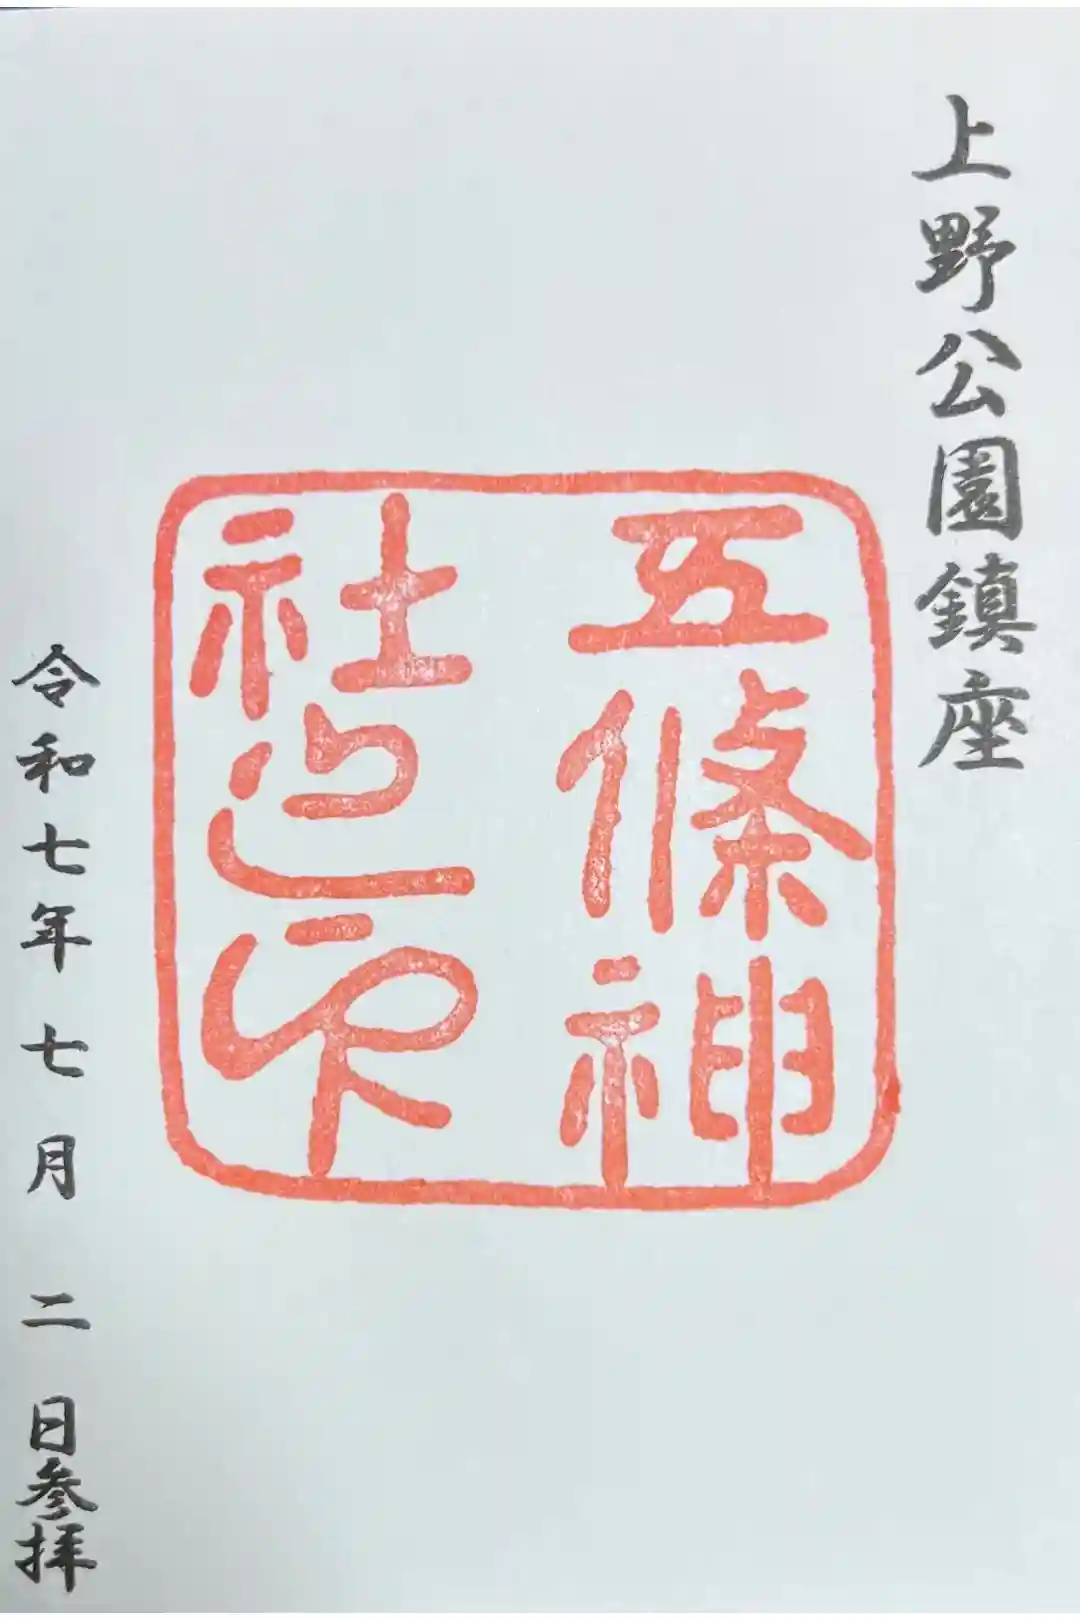 上野公園鎮座
五條神
社之印
令和七年七月二日参拝